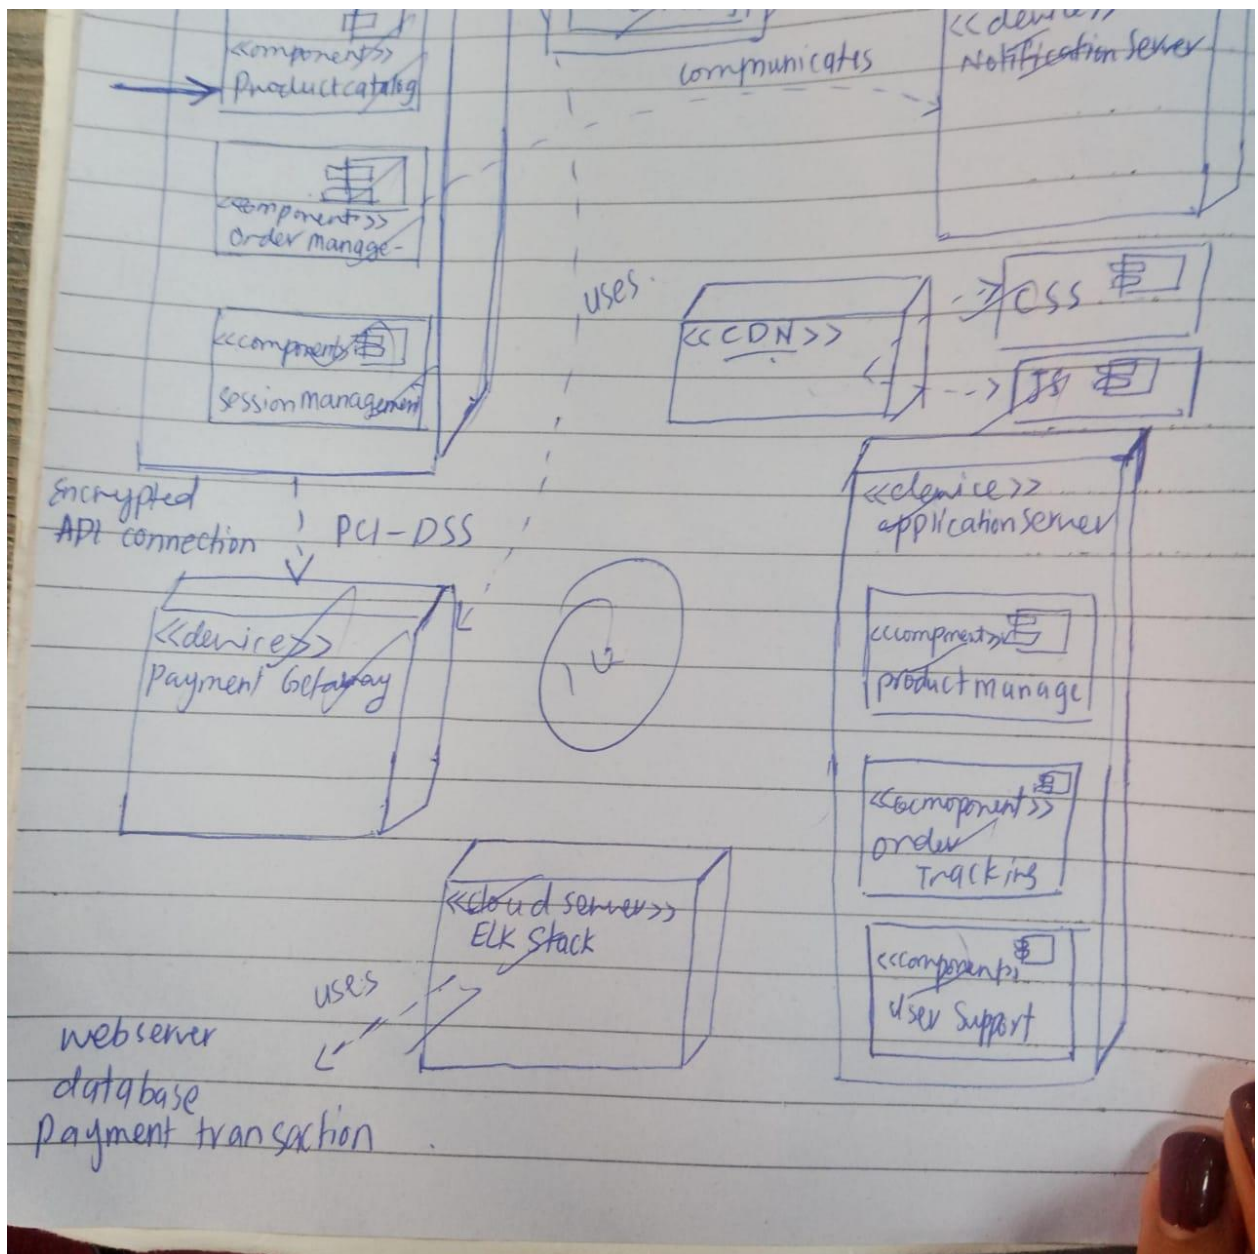 <<component>>
Productcatalog
<<component>>
Order manage-
<<component>>
session management
communicates
<<device>>
Notification Server
uses.
<<CDN>>
CSS
JS
Encrypted
API connection
PCI-DSS
<<device>>
Payment Getaway
<<device>>
application Server
<<compment>>
product manage
<<ocmoponent>>
order
Tracking
<<component>>
User Support
<<cloud server>>
ELK Stack
uses
webserver
database
Payment transaction